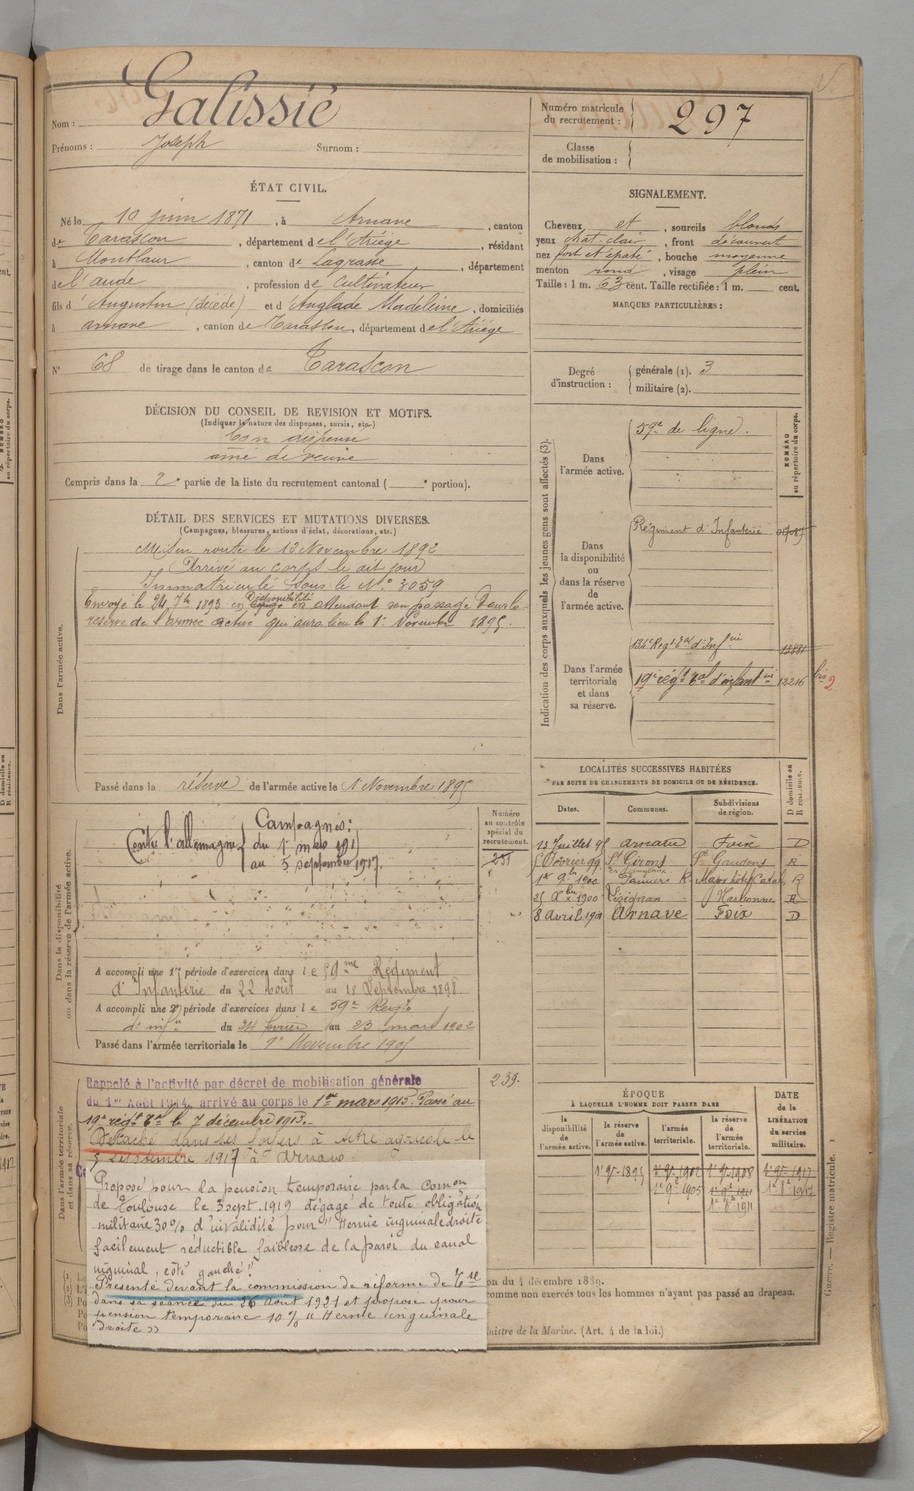 Nom : Galissié
Prénoms : Joseph Surnom :
ÉTAT CIVIL.
Né le 10 juin 1871, à Arnave, canton
de Tarascon, département de l'Ariège, résidant
à Montlaur, canton de Lagrasse, département
de l'aude, profession de Cultivateur
fils d'Augustin (décédé) et d'Anglade Madeleine, domiciliés
à arnave, canton de Tarascon, département de l'Ariège
N° 68 de tirage dans le canton de Tarascon
DÉCISION DU CONSEIL DE REVISION ET MOTIFS.
(Indiquer la nature des dispenses, sursis, etc.)
bon dispense
ainé de veuve
Compris dans la 2e partie de la liste du recrutement cantonal ( e portion).
DÉTAIL DES SERVICES ET MUTATIONS DIVERSES.
(Campagnes, blessures, actions d'éclat, décorations, etc.)
Dans l'armée active.
Mis en route le 13 Novembre 1892
Arrivé au corps le dit jour
Immatriculé sous le N° 3059
Envoyé le 24 7bre 1893 en Disponibilité en attendant son passage dans la
réserve de l'armée active qui aura lieu le 1er Novembre 1895.
Passé dans la réserve de l'armée active le 1 Novembre 1895
Dans la disponibilité
ou dans la réserve de l'armée active.
Numéro
au contrôle
spécial du
recrutement.
251
Campagnes :
Contre l'allemagne du 1er mars 1915
au 5 septembre 1917.
A accompli une 1re période d'exercices dans le 59me Régiment
d'Infanterie du 22 août au 18 Septembre 1898
A accompli une 2e période d'exercices dans le 59e Regt
d'infie du 24 février au 23 mars 1902
Passé dans l'armée territoriale le 1er Novembre 1905
239.
Dans l'armée territoriale
et dans sa réserve.
Rappelé à l'activité par décret de mobilisation générale
du 1er Août 1914, arrivé au corps le 1er mars 1915. Passé au
19e régt Tal le 7 décembre 1915.
Détaché dans ses foyers à titre agricole le
5 Septembre 1917 à Arnave
Proposé pour la pension temporaire par la Comon
de Toulouse le 3 sept. 1919 dégagé de toute obligation
militaire 30% d'invalidité pour "Hernie inguinale droite
facilement réductible faiblesse de la paroi du canal
inguinal, côté gauche".
Présenté devant la commission de réforme de Tlse
dans sa séance du 26 Août 1921 et proposé pour
pension temporaire 10% "Hernie inguinale
droite"
Numéro matricule
du recrutement : 297
Classe
de mobilisation :
SIGNALEMENT.
Cheveux et, sourcils blonds
yeux chat. clair, front découvert
nez fort et épaté, bouche moyenne
menton rond, visage plein
Taille : 1 m. 63 cent. Taille rectifiée : 1 m. cent.
MARQUES PARTICULIÈRES :
Degré
d'instruction :
générale (1). 3
militaire (2).
Indication des corps auxquels les jeunes gens sont affectés (3).
NUMÉRO
au répertoire du corps.
Dans
l'armée active.
59e de ligne.
Dans
la disponibilité
ou
dans la réserve
de
l'armée active.
Régiment d'Infanterie
Dans l'armée
territoriale
et dans
sa réserve.
134e Regt Tal d'Infie 13881
19e régt Tal d'infantie 13216 bis 2
LOCALITÉS SUCCESSIVES HABITÉES
PAR SUITE DE CHANGEMENTS DE DOMICILE OU DE RÉSIDENCE.
Dates. Communes. Subdivisions
de région. D domicile ou
R résidence.
Foix D
5 Février 99 St Girons St Gaudens R
1er 9bre 1900 R
25 Xbre 1900 Lézignan Narbonne R
8 Avril 1901 Arnave Foix D
ÉPOQUE
À LAQUELLE L'HOMME DOIT PASSER DANS
DATE
de la
LIBÉRATION
du service
militaire.
la
disponibilité
de
l'armée active.
la réserve
de
l'armée active.
l'armée
territoriale.
la réserve
de
l'armée
territoriale.
1er 9bre 1895
1er 9bre 1905
on du 4 décembre 1889.
comme non exercés tous les hommes n'ayant pas passé au drapeau.
inistre de la Marine. (Art. 4 de la loi.)
Guerre. — Registre matricule. 1